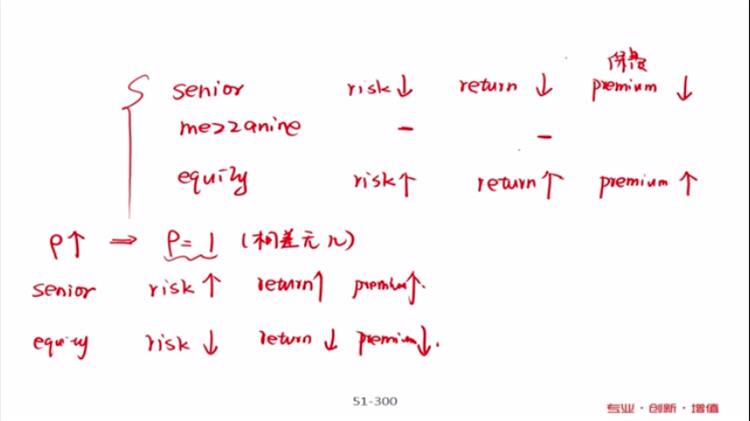 保费
senior risk↓ return↓ premium↓
mezzanine - -
equity risk↑ return↑ premium↑
ρ↑ ⇒ ρ=1 (相差无几)
senior risk↑ return↑ premium↑.
equity risk↓ return↓ premium↓.
51-300
专业·创新·增值